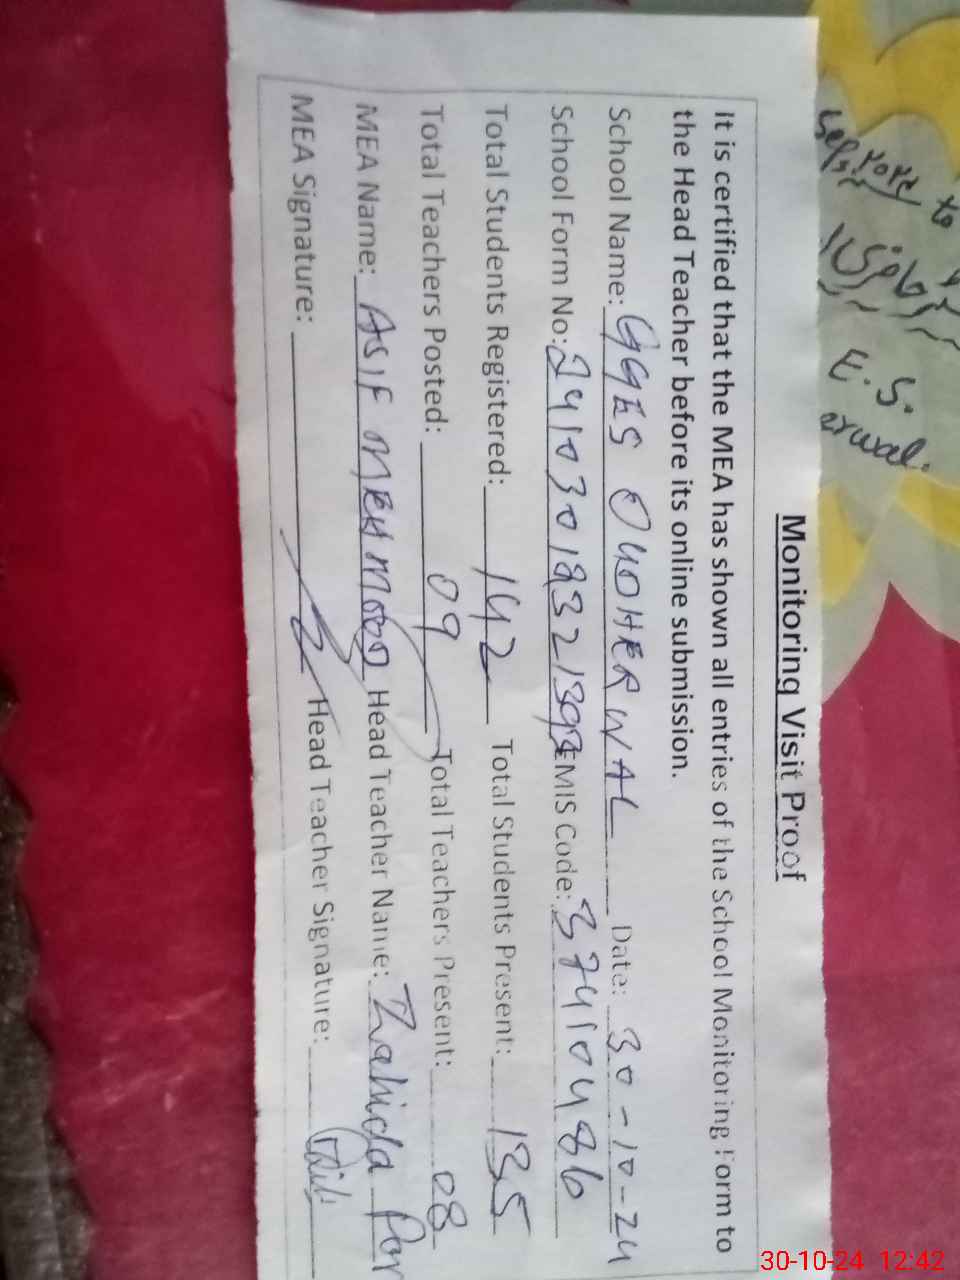 Monitoring Visit Proof
It is certified that the MEA has shown all entries of the School Monitoring Form to
the Head Teacher before its online submission.
School Name: GGES OUOHERWAL Date: 30-10-24
School Form No: EMIS Code: 37410486
Total Students Registered: 142 Total Students Present: 135
Total Teachers Posted: 09 Total Teachers Present: 08
MEA Name: ASIF MEHMOOD Head Teacher Name: Zahida Par
MEA Signature: Head Teacher Signature:
to
30-10-24 12:42